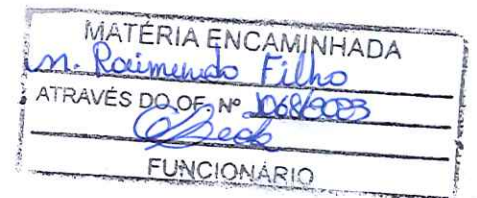 MATÉRIA ENCAMINHADA
m. Raimundo Filho
ATRAVÉS DO OF. Nº 1068/2023
FUNCIONÁRIO